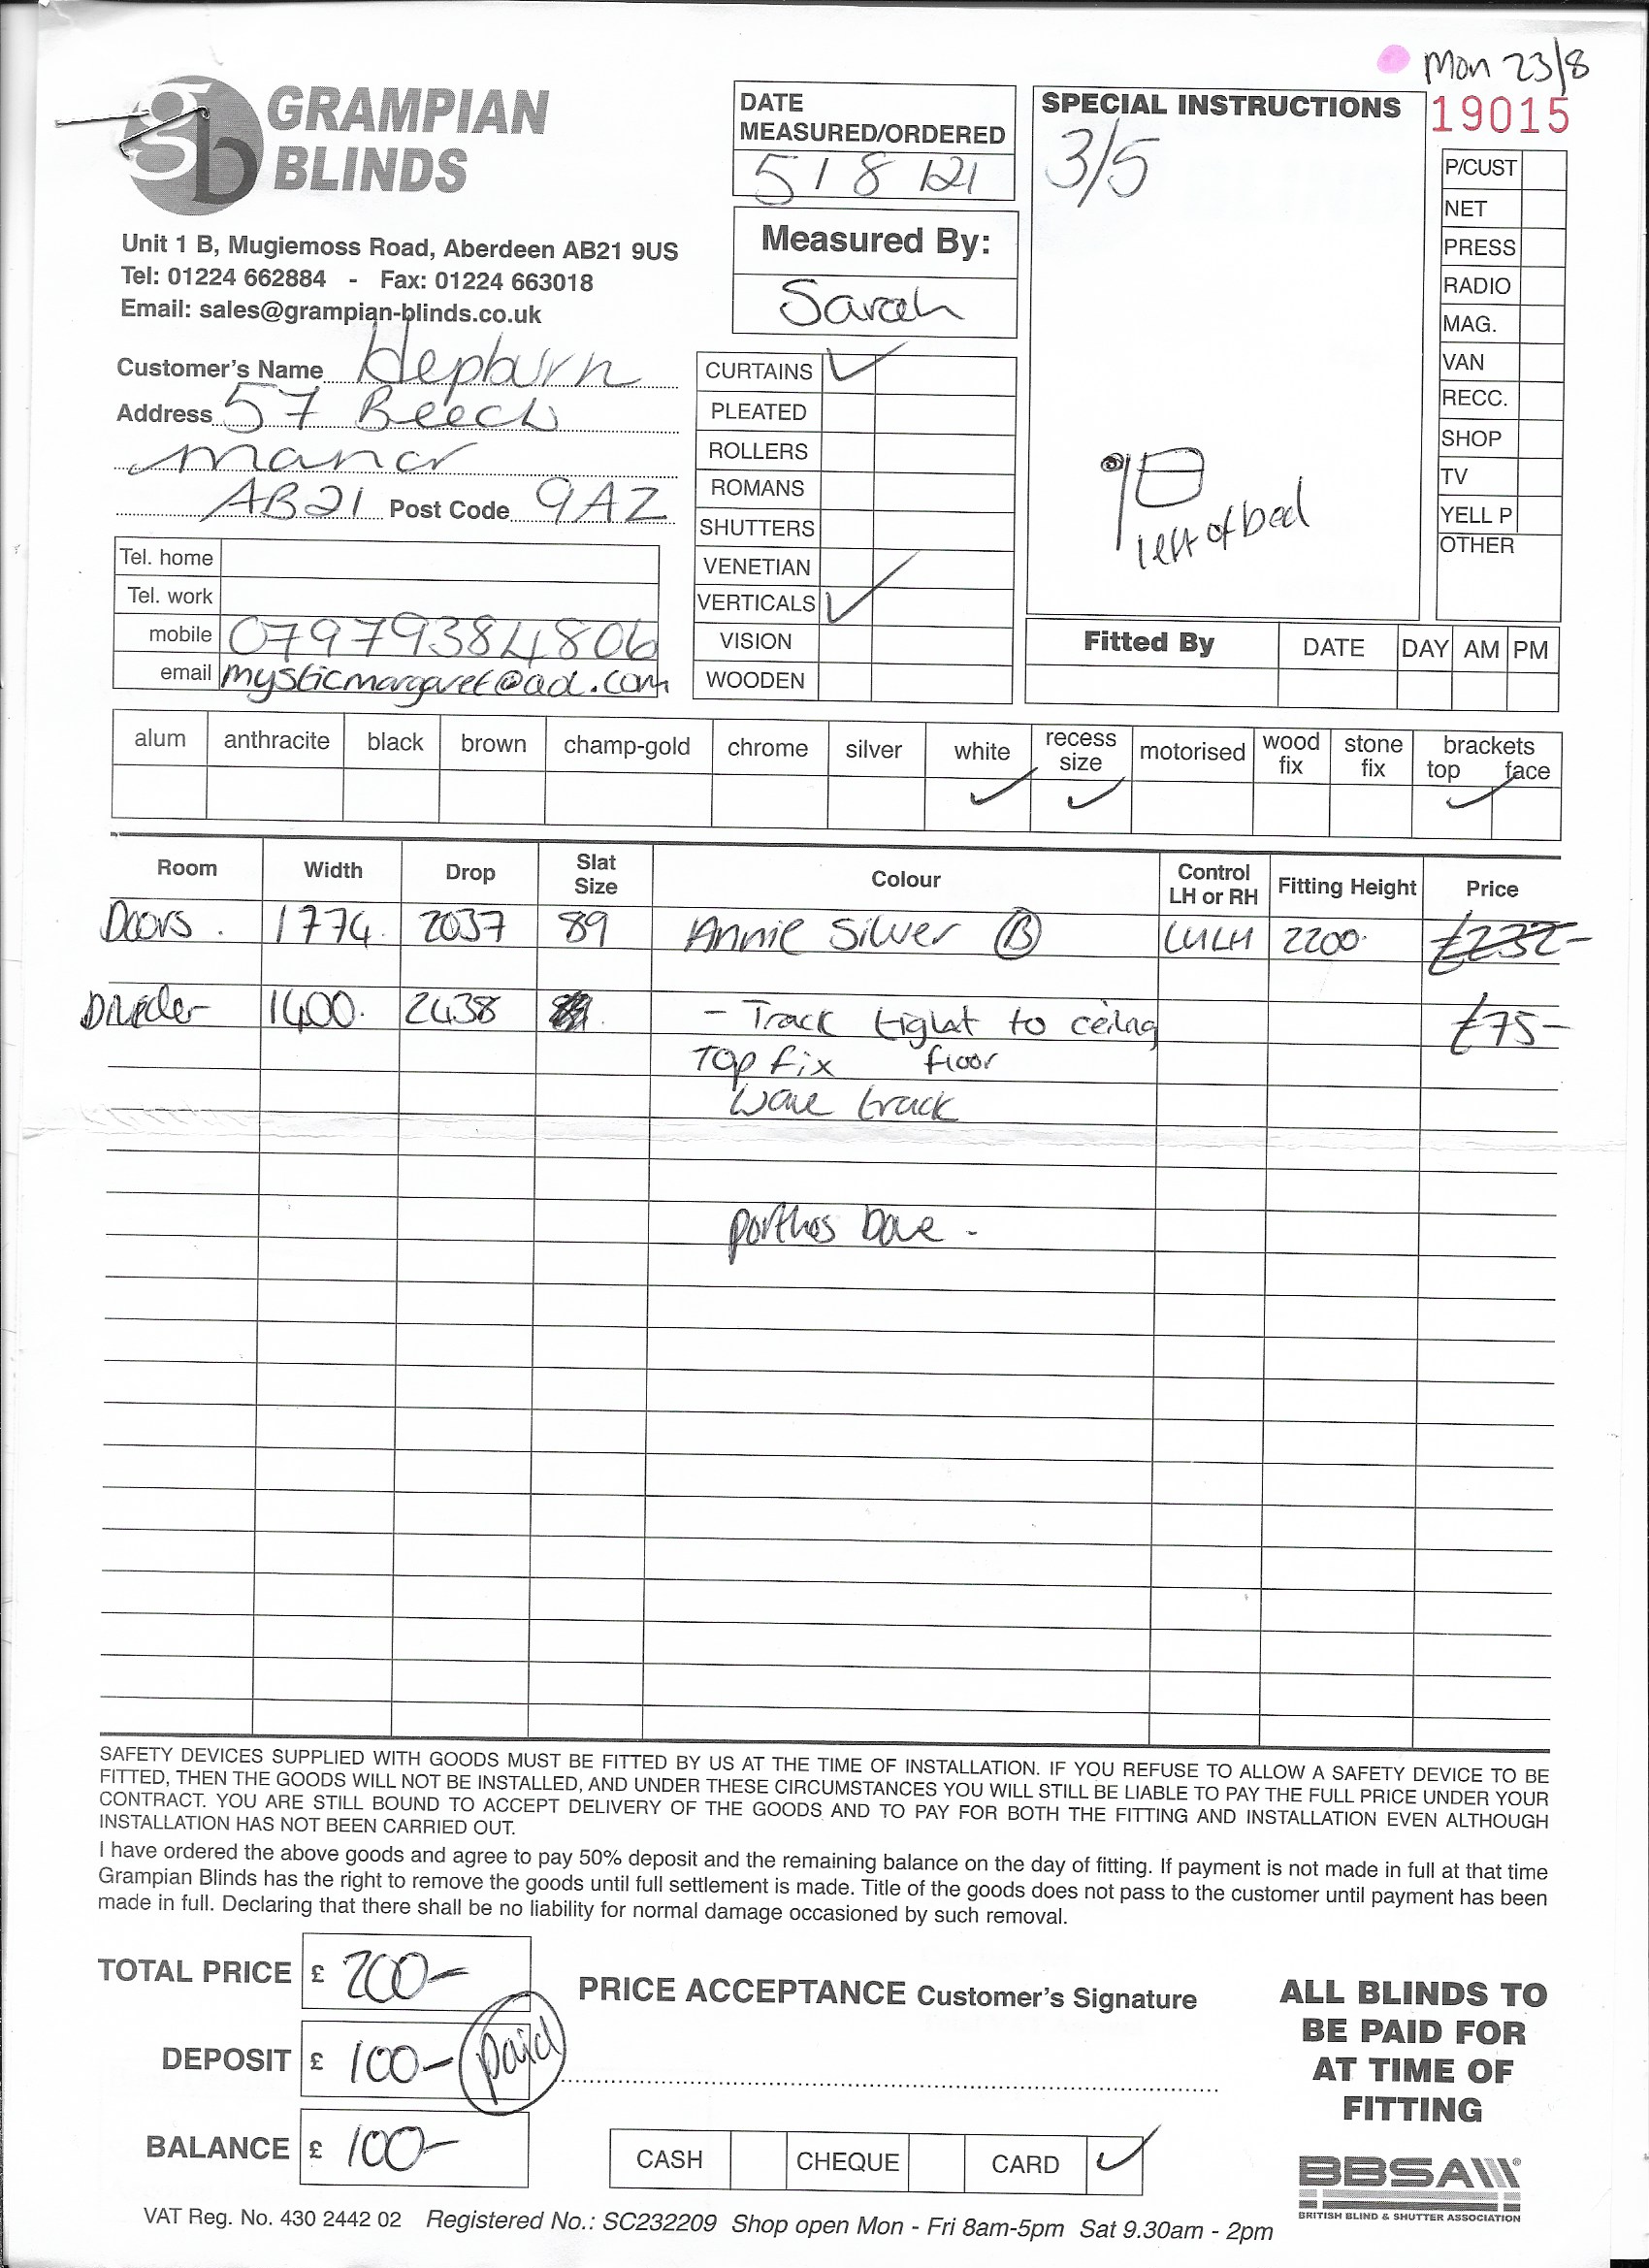 Mon 23/8
GRAMPIAN
BLINDS
Unit 1 B, Mugiemoss Road, Aberdeen AB21 9US
Tel: 01224 662884 - Fax: 01224 663018
Email: sales@grampian-blinds.co.uk
Customer's Name Hepburn
Address 57 Beech
Manor
AB21 Post Code 9AZ
Tel. home
Tel. work
mobile 07979384806
email mysticmargaret@aol.com
DATE
MEASURED/ORDERED
5/8/21
Measured By:
Sarah
CURTAINS ✓
PLEATED
ROLLERS
ROMANS
SHUTTERS
VENETIAN
VERTICALS ✓
VISION
WOODEN
SPECIAL INSTRUCTIONS
3/5
left of bed
19015
P/CUST
NET
PRESS
RADIO
MAG.
VAN
RECC.
SHOP
TV
YELL P
OTHER
Fitted By DATE DAY AM PM
alum anthracite black brown champ-gold chrome silver white recess size motorised wood fix stone fix brackets top face
✓ ✓ ✓
Room Width Drop Slat Size Colour Control LH or RH Fitting Height Price
Doors. 1774. 2037 89 Annie Silver B LHLH 2200. £232-
Divider 1400. 2438 - Track tight to ceiling £75-
Top fix floor
Wave track
porthos Dove -
SAFETY DEVICES SUPPLIED WITH GOODS MUST BE FITTED BY US AT THE TIME OF INSTALLATION. IF YOU REFUSE TO ALLOW A SAFETY DEVICE TO BE
FITTED, THEN THE GOODS WILL NOT BE INSTALLED, AND UNDER THESE CIRCUMSTANCES YOU WILL STILL BE LIABLE TO PAY THE FULL PRICE UNDER YOUR
CONTRACT. YOU ARE STILL BOUND TO ACCEPT DELIVERY OF THE GOODS AND TO PAY FOR BOTH THE FITTING AND INSTALLATION EVEN ALTHOUGH
INSTALLATION HAS NOT BEEN CARRIED OUT.
I have ordered the above goods and agree to pay 50% deposit and the remaining balance on the day of fitting. If payment is not made in full at that time
Grampian Blinds has the right to remove the goods until full settlement is made. Title of the goods does not pass to the customer until payment has been
made in full. Declaring that there shall be no liability for normal damage occasioned by such removal.
TOTAL PRICE £ 200-
DEPOSIT £ 100- paid
BALANCE £ 100-
PRICE ACCEPTANCE Customer's Signature
CASH CHEQUE CARD ✓
ALL BLINDS TO
BE PAID FOR
AT TIME OF
FITTING
BBSA
BRITISH BLIND & SHUTTER ASSOCIATION
VAT Reg. No. 430 2442 02 Registered No.: SC232209 Shop open Mon - Fri 8am-5pm Sat 9.30am - 2pm